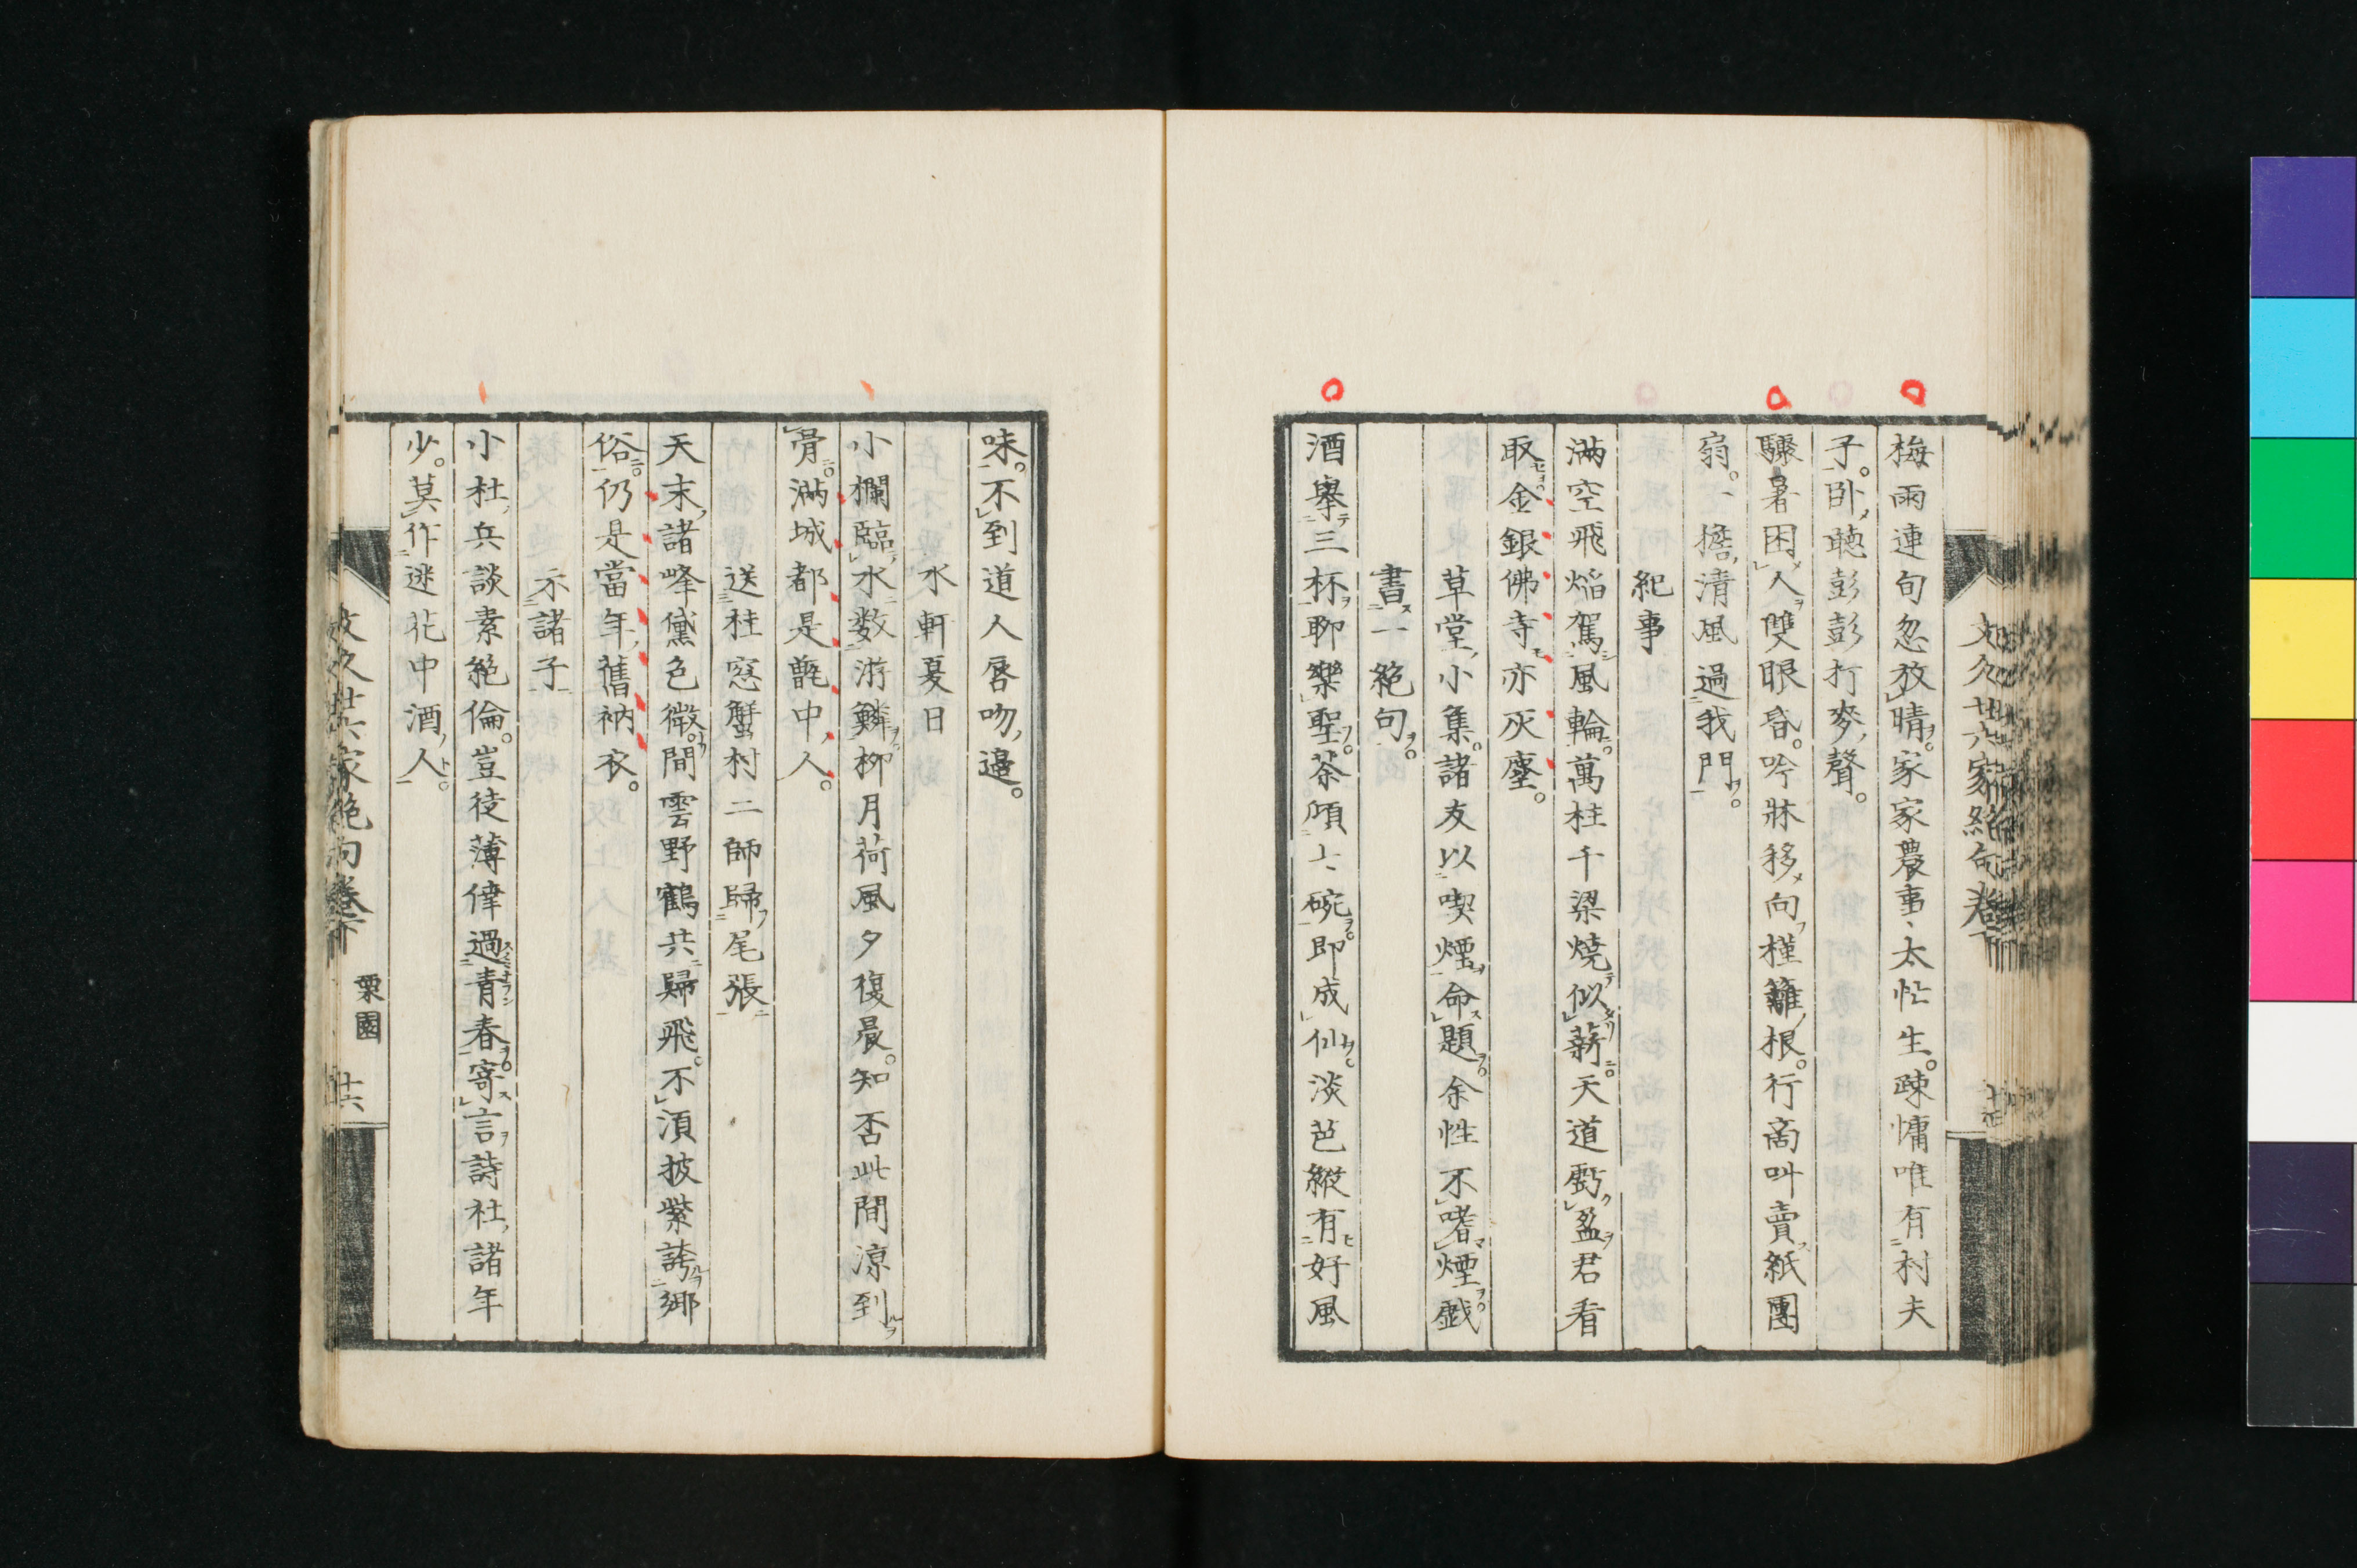 梅雨連旬忽放晴家家農事太忙生疎慵唯有村夫
子臥聽彭彭打麥聲
驟暑困人雙眼昏吟牀移向槿籬根行商叫賣紙團
扇一擔清風過我門
紀事
滿空飛焰駕風輪萬柱千梁燒似薪天道虧盈君看
取金銀佛寺亦灰塵
草堂小集諸友以喫煙命題余性不嗜煙戲
書一絕句
酒擧三杯聊樂聖茶傾七碗即成仙淡芭縱有好風
味不到道人唇吻邊
水軒夏日
小欄臨水數游鱗柳月荷風夕復晨知否此間涼到
骨滿城都是甑中人
送桂窓蟹村二師歸尾張
天末諸峰黛色微間雲野鶴共歸飛不須披紫誇鄉
俗仍是當年舊衲衣
示諸子
小杜兵談素絕倫豈徒薄倖過青春寄言詩社諸年
少莫作迷花中酒人
文久廿六家絕句卷下 栗園 廿六